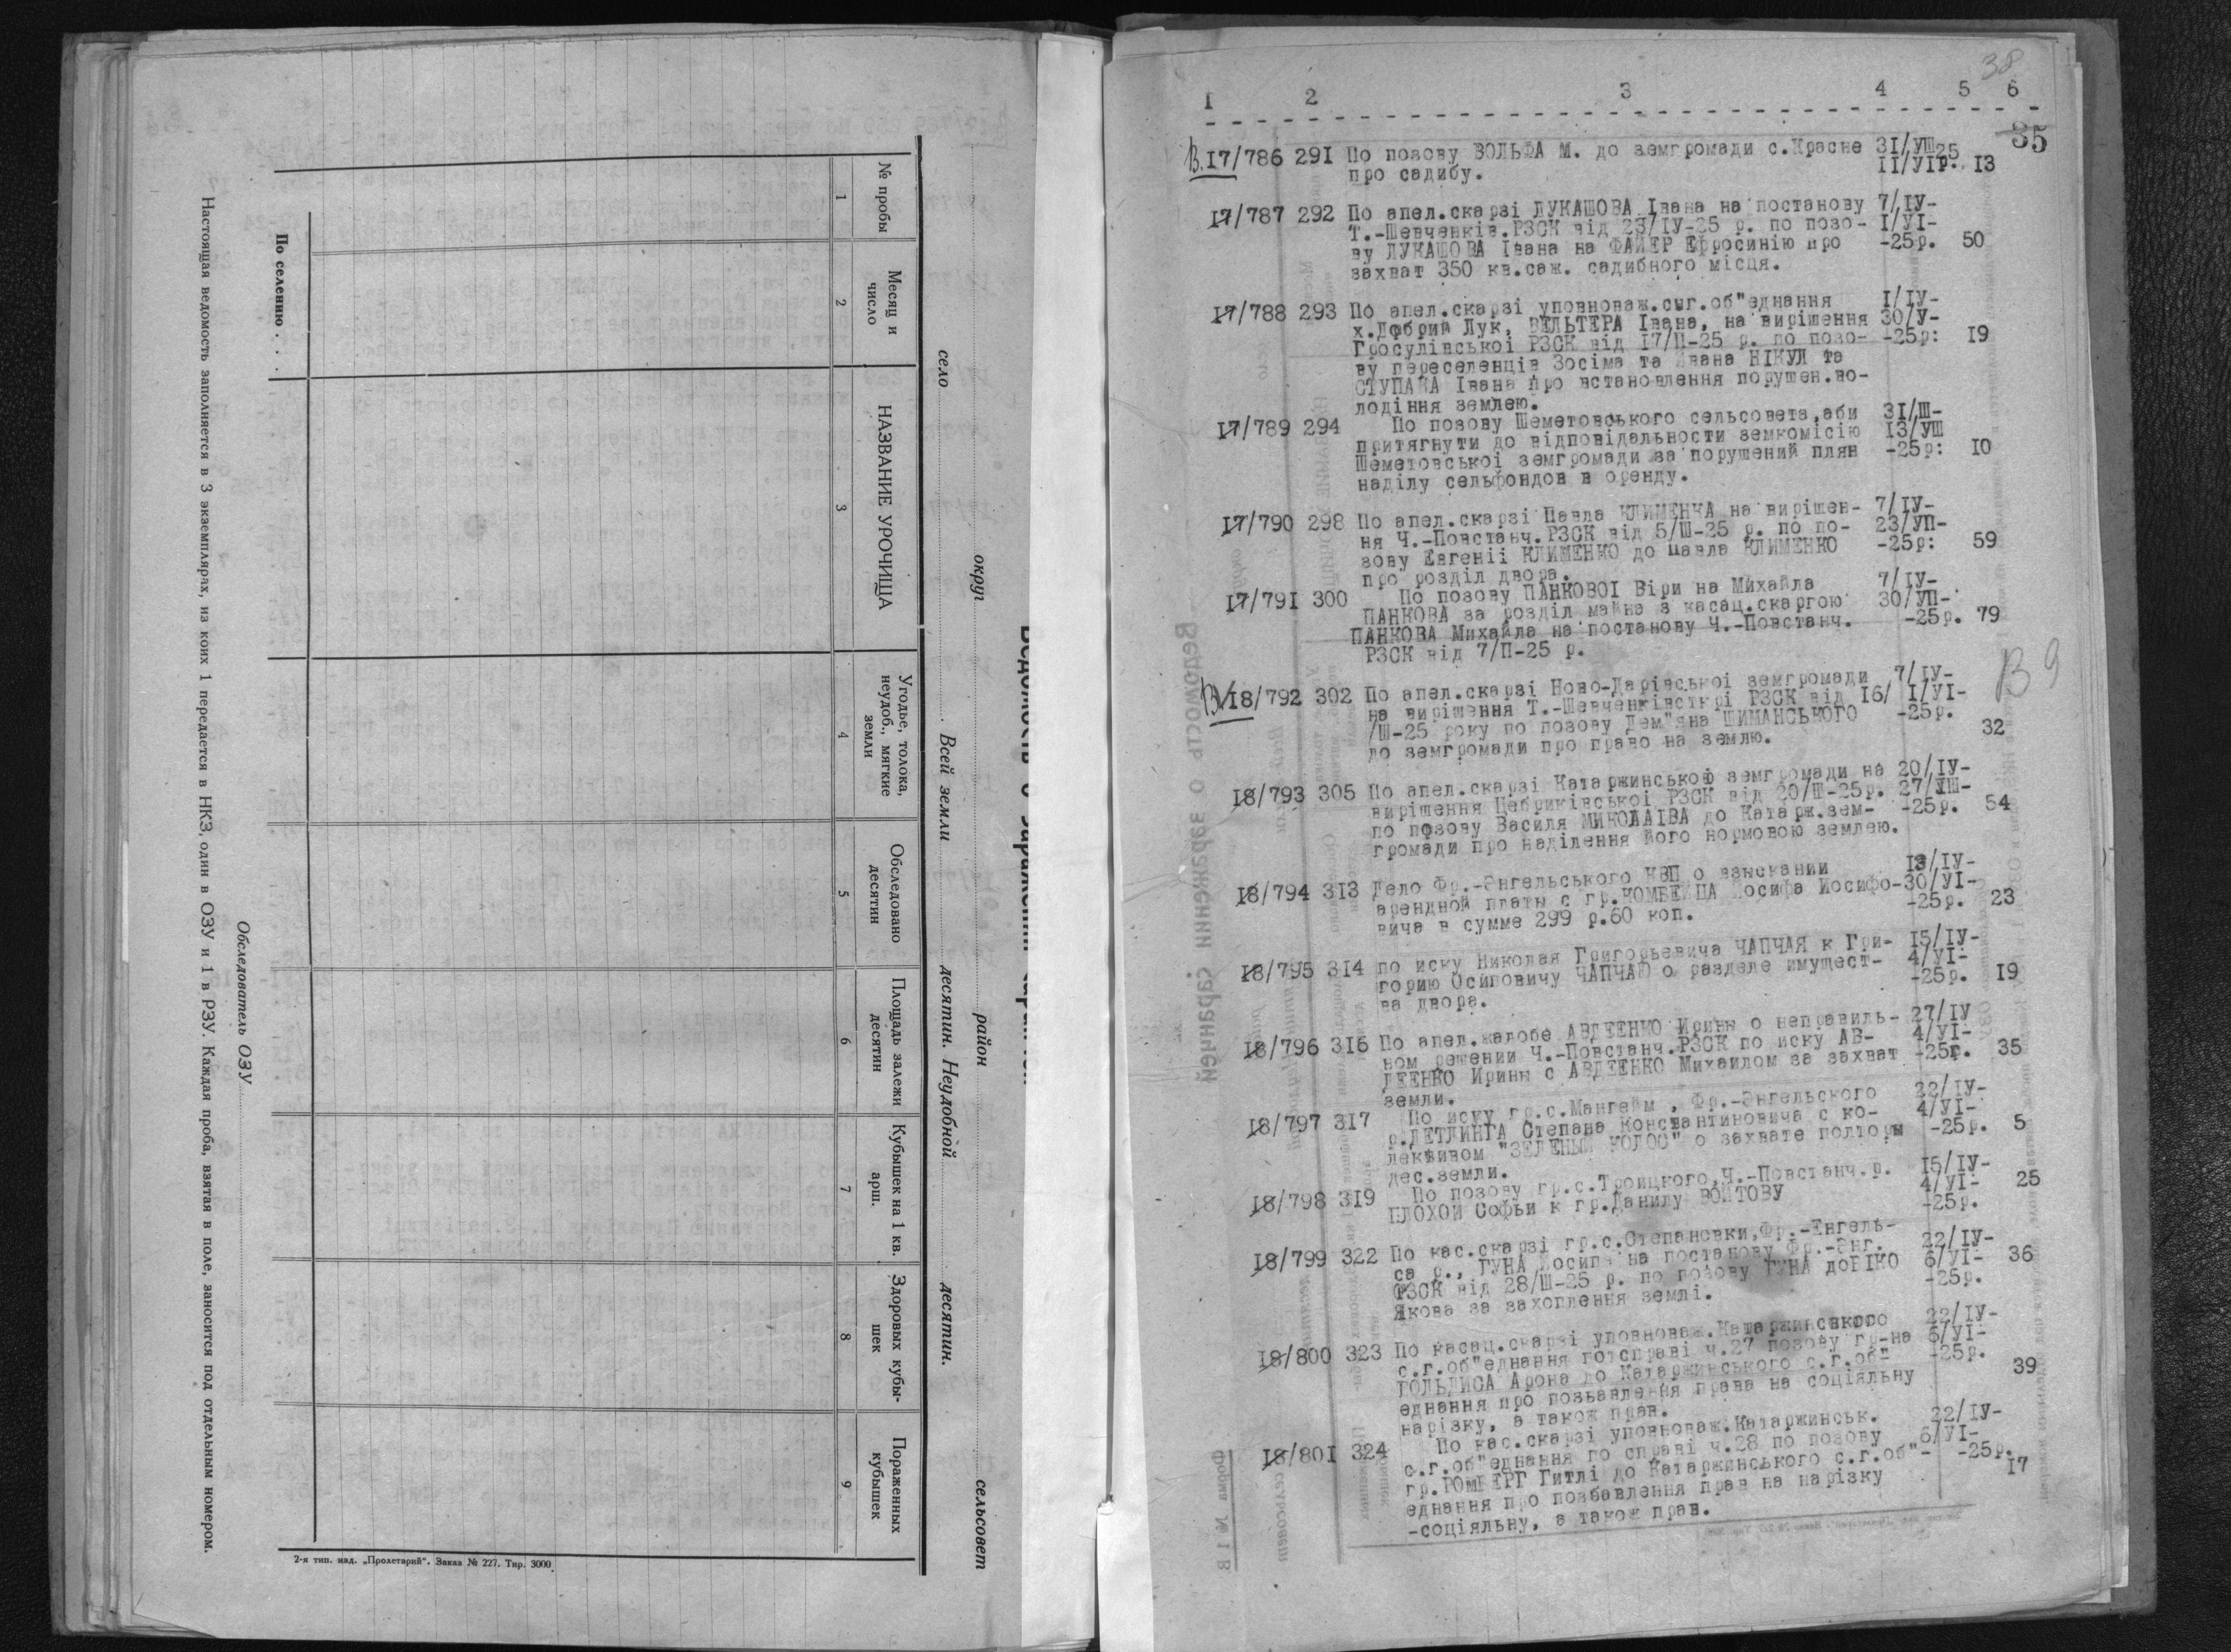 сельсовет
район
округ
село
Всей земли
десятин. Неудобной
десятин.
№ пробы
Месяц и число
НАЗВАНИЕ УРОЧИЩА
Угодье, толока, неудоб., мягкие земли
Обследовано десятин
Площадь залежи десятин
Кубышек на 1 кв. арш.
Здоровых кубышек
Пораженных кубышек
1 2 3 4 5 6 7 8 9
По селению . . .
Обследователь ОЗУ
Настоящая ведомость заполняется в 3 экземплярах, из коих 1 передается в НКЗ, один в ОЗУ и 1 в РЗУ. Каждая проба, взятая в поле, заносится под отдельным номером.
2-я тип. изд. „Пролетарий“. Заказ № 227. Тир. 3000
38
I 2 3 4 5 6
35
В.I7/786 291 По позову ВОЛЬФА М. до земгромади с.Красне 31/УШ25
про садибу. II/УIР. I3
I7/787 292 По апел.скарзі ЛУКАШОВА Івана на постанову 7/IУ-
Т.-Шевченків.РЗСК від 23/IУ-25 р. по позо- I/УI-
ву ЛУКАШОВА Івана на ФАЙЕР Ефросинію про -25р. 50
захват 350 кв.саж. садибного місця.
I7/788 293 По апел.скарзі уповноваж.сыг.об"єднання I/IУ-
х.Добрий Лук, ВЕЛЬТЕРА Івана, на вирішення 30/У-
Гросулівської РЗСК від I7/П-25 р. по позо- -25р: I9
ву переселенців Зосіма та Івана НІКУЛ та
СТУПАКА Івана про встановлення порушен.во-
лодіння землею.
I7/789 294 По позову Шеметовського сельсовета,аби 3I/Ш-
притягнути до відповідальности земкомісію I3/УШ
Шеметовської земгромади за порушений плян -25р: I0
наділу сельфондов в оренду.
I7/790 298 По апел.скарзі Павла КЛИМЕНКА на вирішен- 7/IУ-
ня Ч.-Повстанч.РЗСК від 5/Ш-25 р. по по- 23/УП-
зову Евгенії КЛИМЕНКО до Павла КЛИМЕНКО -25р: 59
про розділ двора.
I7/79I 300 По позову ПАНКОВОІ Віри на Михайла 7/IУ-
ПАНКОВА за розділ майна з касац.скаргою 30/УП-
ПАНКОВА Михайла на постанову Ч.-Повстанч. -25р. 79
РЗСК від 7/П-25 р.
В 9
I8/792 302 По апел.скарзі Ново-Дарівської земгромади 7/IУ-
на вирішення Т.-Шевченківсткрі РЗСК від I6/ I/УI-
/Ш-25 року по позову Дем"яна ШИМАНСЬКОГО -25р.
до земгромади про право на землю. 32
I8/793 305 По апел.скарзі Катаржинською земгромади на 20/IУ-
вирішення Цебриківської РЗСК від 20/Ш-25р. 27/УШ-
по позову Василя МИКОЛАІВА до Катарж.зем- -25р. 54
громади про наділення його нормовою землею.
I8/794 3I3 Дело Фр.-Энгельського КВП о взыскании I3/IУ-
арендной платы с гр.КОМБЕЙЦА Иосифа Иосифо-30/УI-
вича в сумме 299 р.60 коп. -25р. 23
I8/795 3I4 по иску Николая Григорьевича ЧАПЧАЯ к Гри- I5/IУ-
горию Осиповичу ЧАПЧАЮ о разделе имущест- 4/УI-
ва двора. -25р. I9
I8/796 3I6 По апел.жалобе АВДЕЕНКО Ирины о неправиль- 27/IУ
ном решении Ч.-Повстанч.РЗСК по иску АВ- 4/УI-
ДЕЕНКО Ирины с АВДЕЕНКО Михаилом за захват -25г. 35
земли.
I8/797 3I7 По иску гр.с.Мангейм , Фр.-Энгельского 22/IУ-
р.ДЕТЛИНГА Степана Константиновича с ко- 4/УI-
лективом "ЗЕЛЕНЫЙ КОЛОС" о захвате полторы -25р. 5
дес.земли.
I8/798 3I9 По позову гр.с.Троицкого,Ч.-Повстанч.р. I5/IУ-
ПЛОХОЙ Софьи к гр.Данилу ВОЙТОВУ 4/УI- 25
-25р.
I8/799 322 По кас.скарзі гр.с.Степановки,Фр.-Енгель- 22/IУ-
са р., ГУНА Йосипа на постанову Фр.-Энг. 6/УI- 36
РЗСК від 28/Ш-25 р. по позову ГУНА до -25р.
Якова за захоплення землі.
I8/800 323 По касац.скарзі уповноваж.Катаржинського 22/IУ-
с.г.об"еднання ч.27 позову гр-на 6/УI-
ГОЛЬДИСА Арона до Катаржинського с.г.об" -25р.
еднання про позбавлення права на соціяльну 39
нарізку, а також прав.
I8/80I 324 По кас.скарзі уповноваж.Катаржинськ. 22/IУ-
с.г.об"еднання по справі ч.28 по позову 6/УI-
гр. Гитлі до Катаржинського с.г.об"- -25р.
еднання про позбавлення прав на нарізку I7
-соціяльну, а також прав.